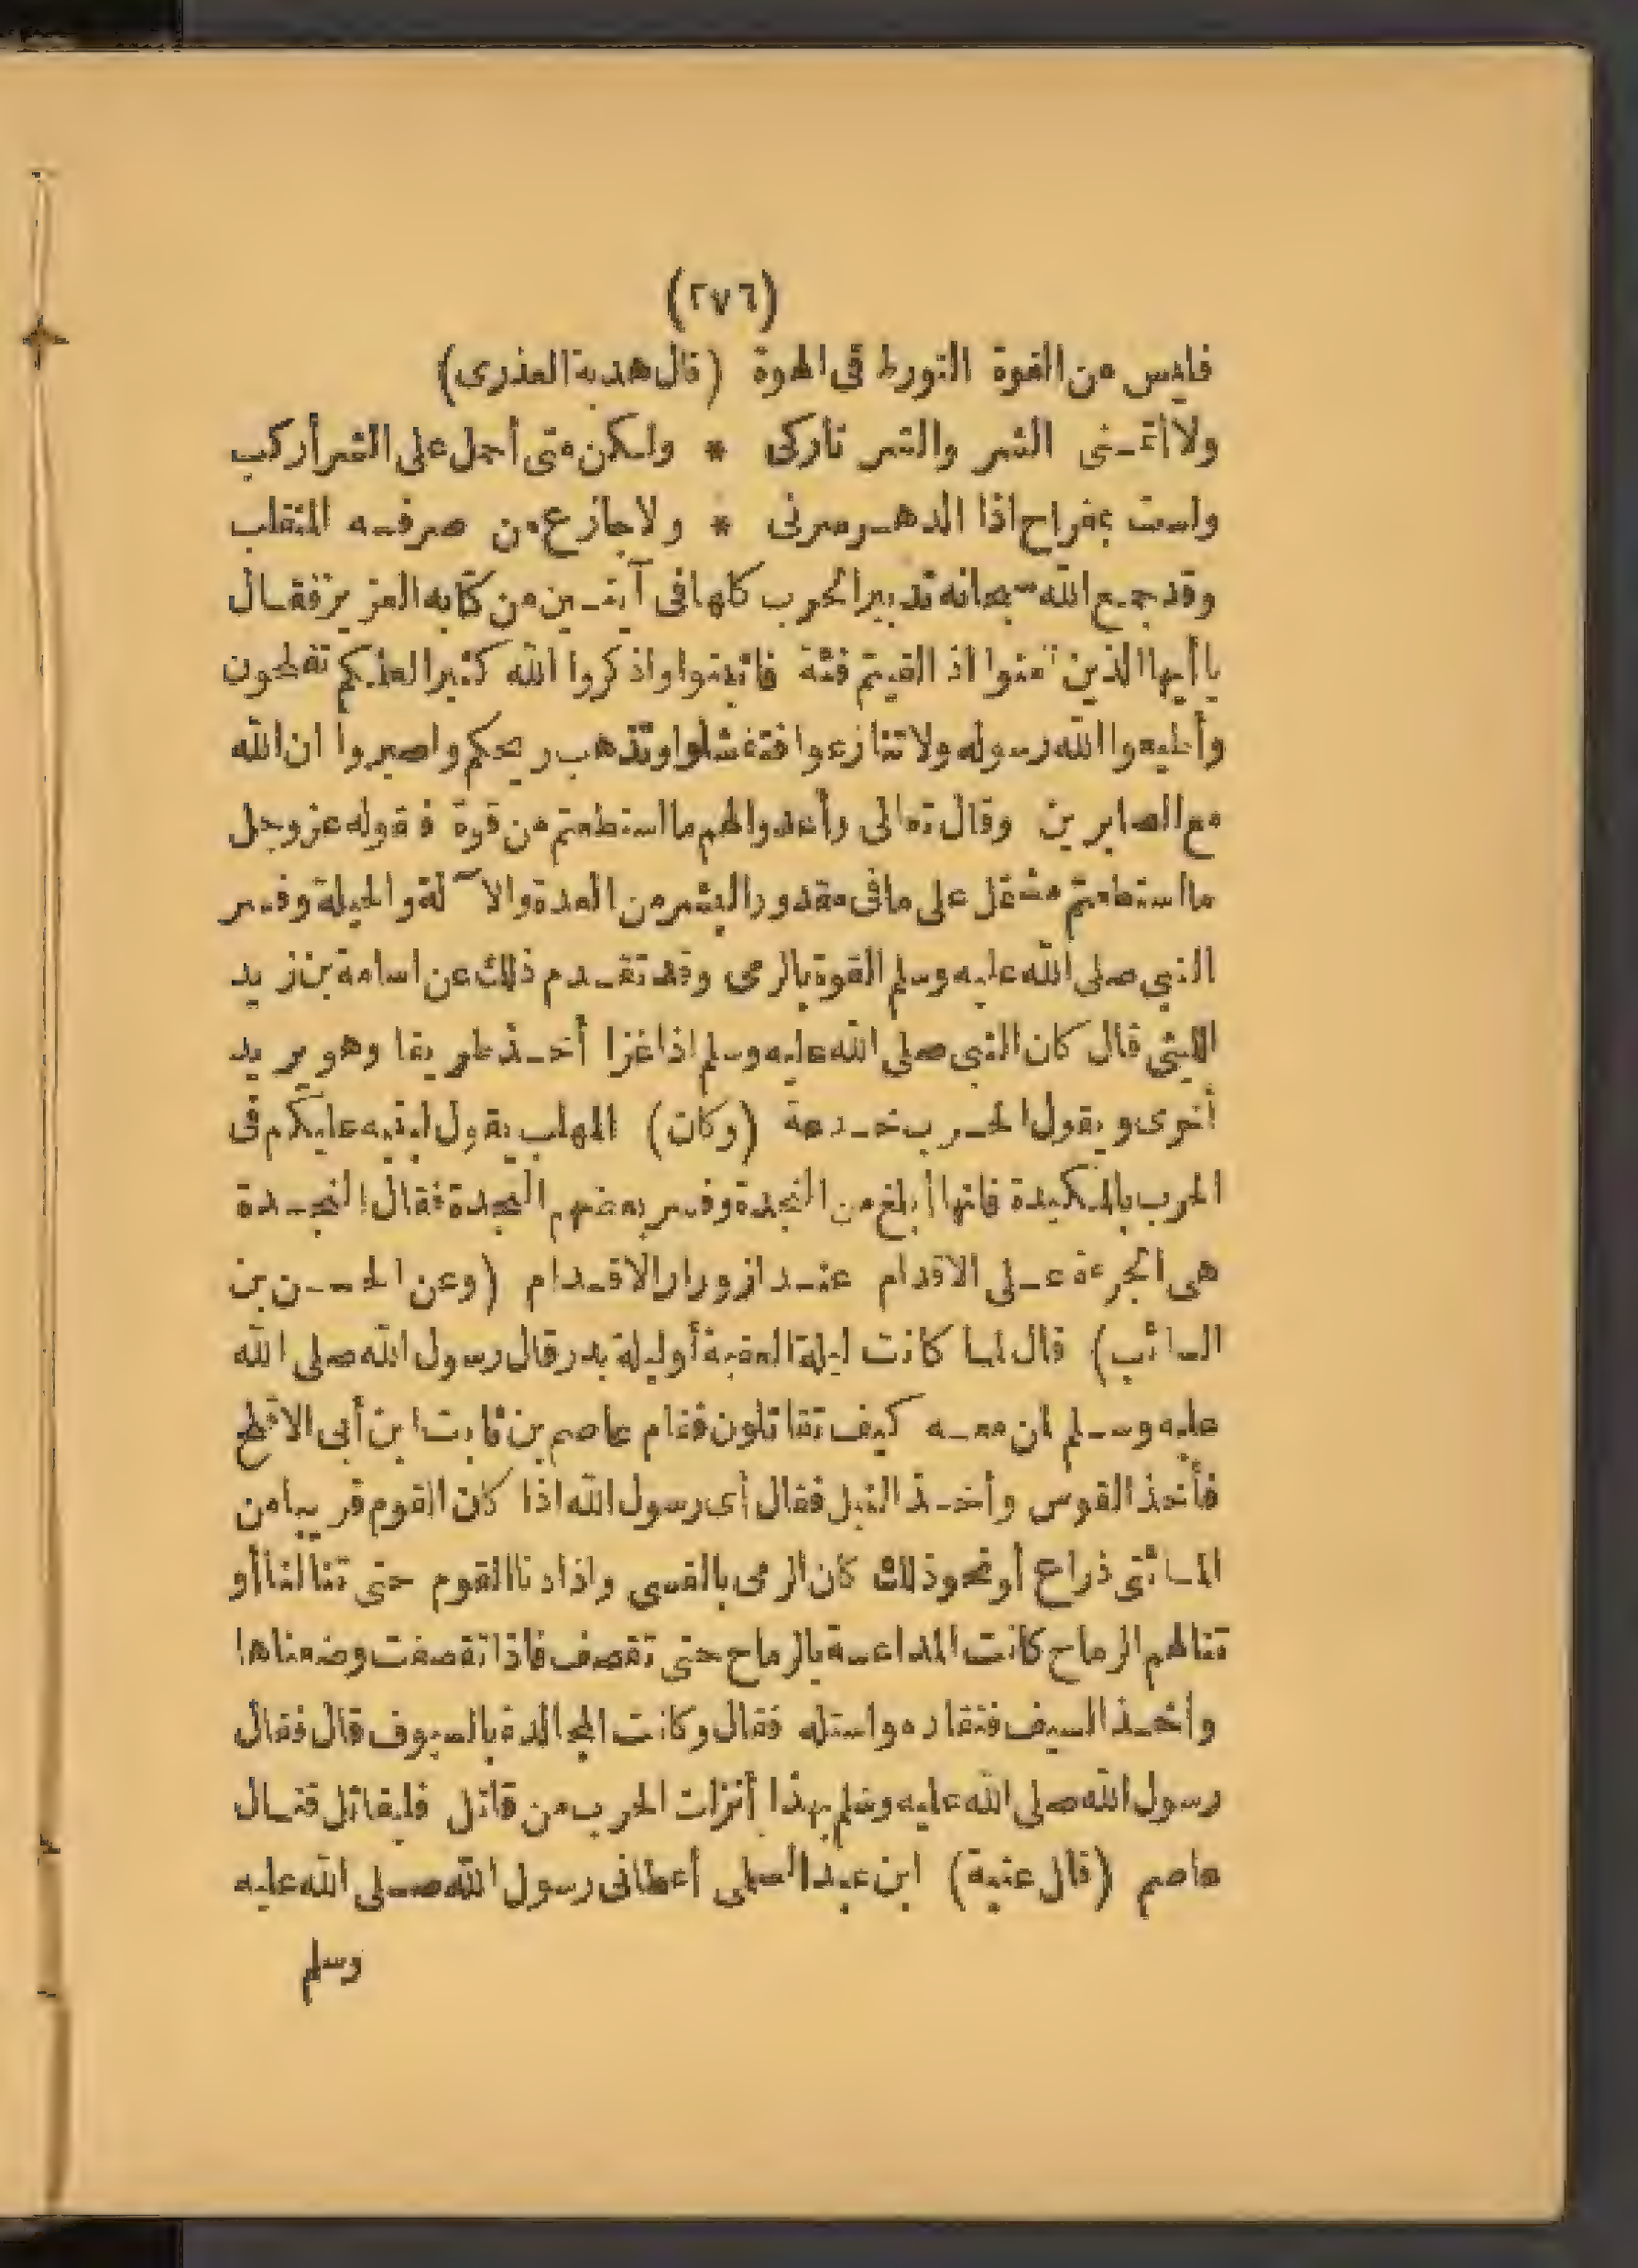 (٢٧٦)
فليس من القوة التورط فى الهوة (قال هدبة العذرى)
ولا أتمنى الشر والشر تاركى * ولكن متى أحمل على الشر أركب
ولست بمفراح اذا الدهر سرنى * ولا جازع من صرفه المتقلب
وقد جمع الله سبحانه تدبير الحرب كلها فى آيتين من كتابه العزيز فقال
يا أيها الذين آمنوا اذ القيتم فئة فاثبتوا واذكروا الله كثيرا لعلكم تفلحون
وأطيعوا الله رسوله ولا تنازعوا فتفشلوا وتذهب ريحكم واصبروا ان الله
مع الصابرين وقال تعالى وأعدوا لهم ما استطعتم من قوة فقوله عز وجل
ما استطعتم مشتمل على ما فى مقدور البشر من العدة والآلة والحيلة وفسر
النبي صلى الله عليه وسلم القوة بالرمى وقد تقدم ذلك عن اسامة بن زيد
الليثى قال كان النبى صلى الله عليه وسلم اذا غزا أخذ طريقا وهو يريد
أخرى ويقول الحرب خدعة (وكان) المهلب يقول لبنيه عليكم فى
الحرب بالمكيدة فانها أبلغ من النجدة وفسر بعضهم النجدة فقال النجدة
هى الجرءة على الاقدام عند ازورار الاقدام (وعن الحسن بن
السائب) قال لما كانت ليلة العقبة أو ليلة بدر قال رسول الله صلى الله
عليه وسلم لمن معه كيف تقاتلون فقام عاصم بن ثابت ابن أبى الاقلح
فأخذ القوس وأخذ النبل فقال أى رسول الله اذا كان القوم قريبا من
المائتى ذراع أو نحو ذلك كان الرمى بالقسى واذا دنا القوم حتى تنالنا أو
تنالهم الرماح كانت المداعسة بالرماح حتى تقصف فاذا تقصفت وضعناها
وأخذ السيف فتقلده واستله فقال وكانت المجالدة بالسيوف قال فقال
رسول الله صلى الله عليه وسلم بهذا أنزلت الحرب من قاتل فليقاتل قتال
عاصم (قال عتبة) ابن عبد السلمى أعطانى رسول الله صلى الله عليه
وسلم